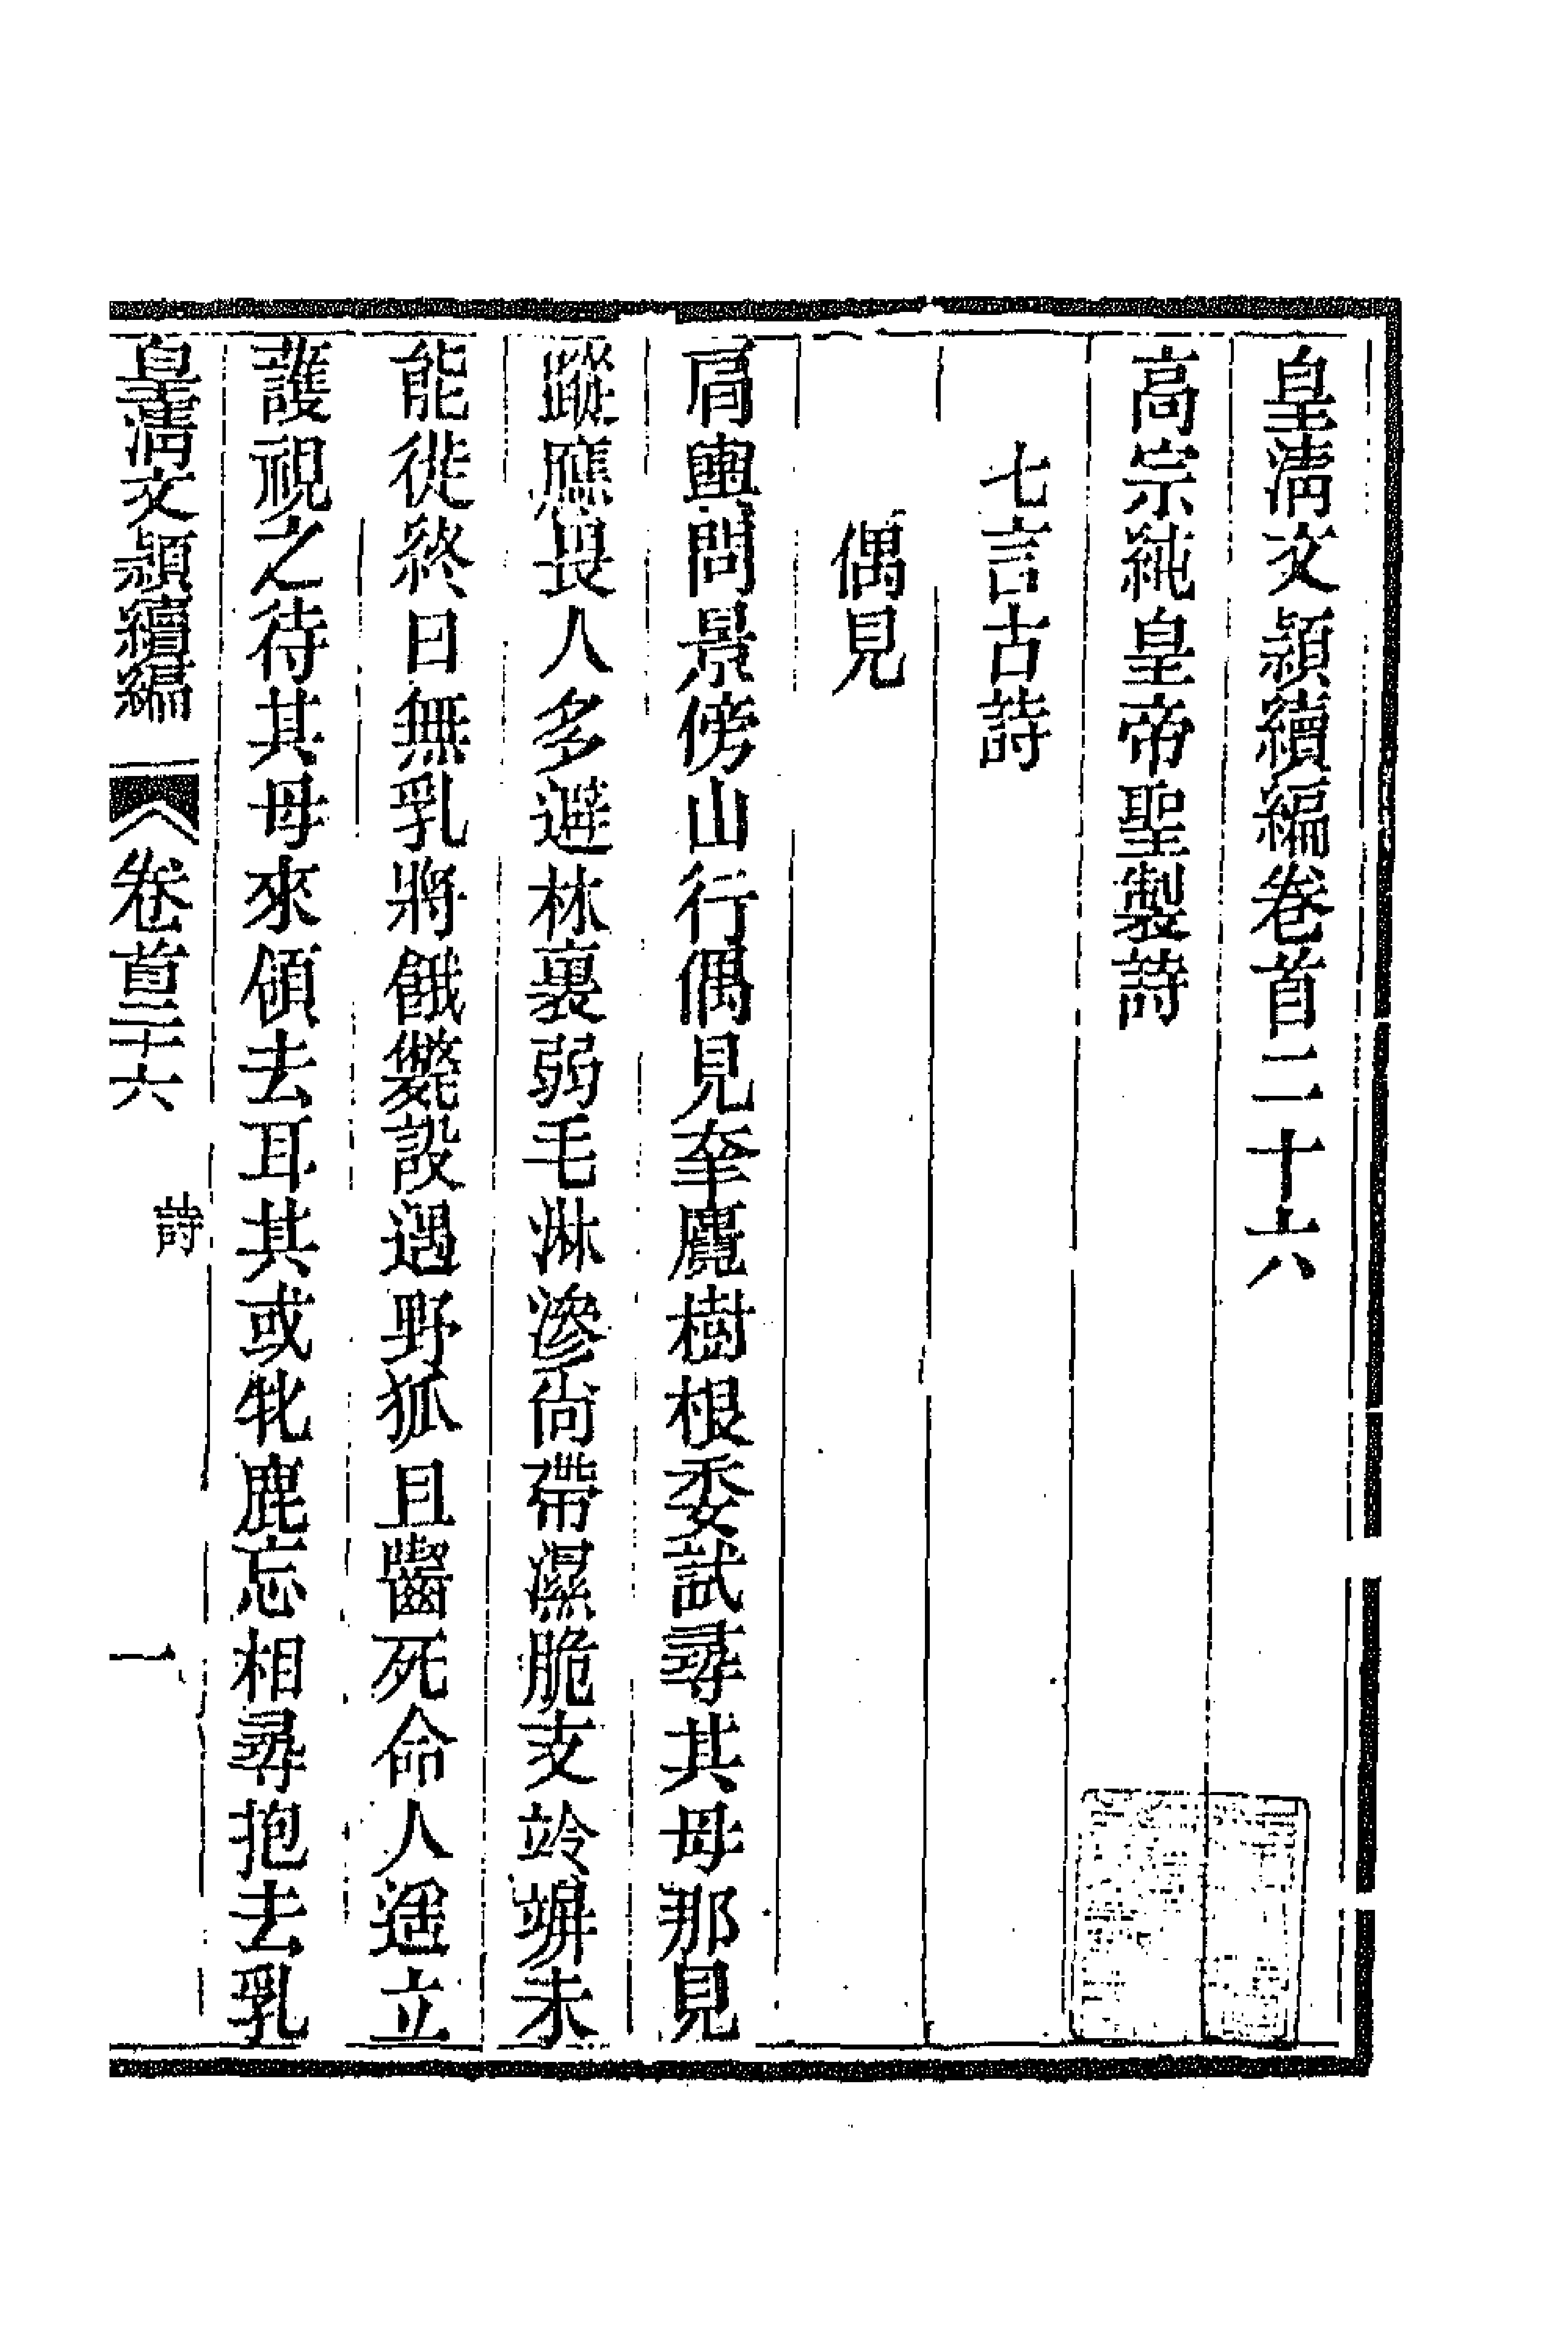 皇淸文頴續編卷首二十六
高宗純皇帝聖製詩
七言古詩
偶見
肩輿問景傍山行偶見㚓麑樹根委試尋其母那見
蹤應畏人多避林裏弱毛淋滲尙帶濕脆支竛竮未
能徙終日無乳將餓斃設遇野狐且齧死命人遥立
護視之待其母來領去耳其或牝鹿忘相尋抱去乳
皇淸文頴續編
卷首二十六
詩
一